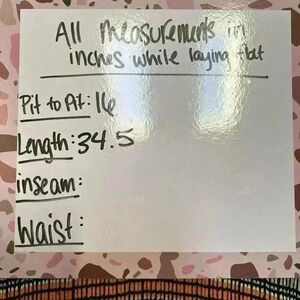 All measurements in
inches while laying flat
Pit to Pit: 16
Length: 34.5
inseam:
Waist: